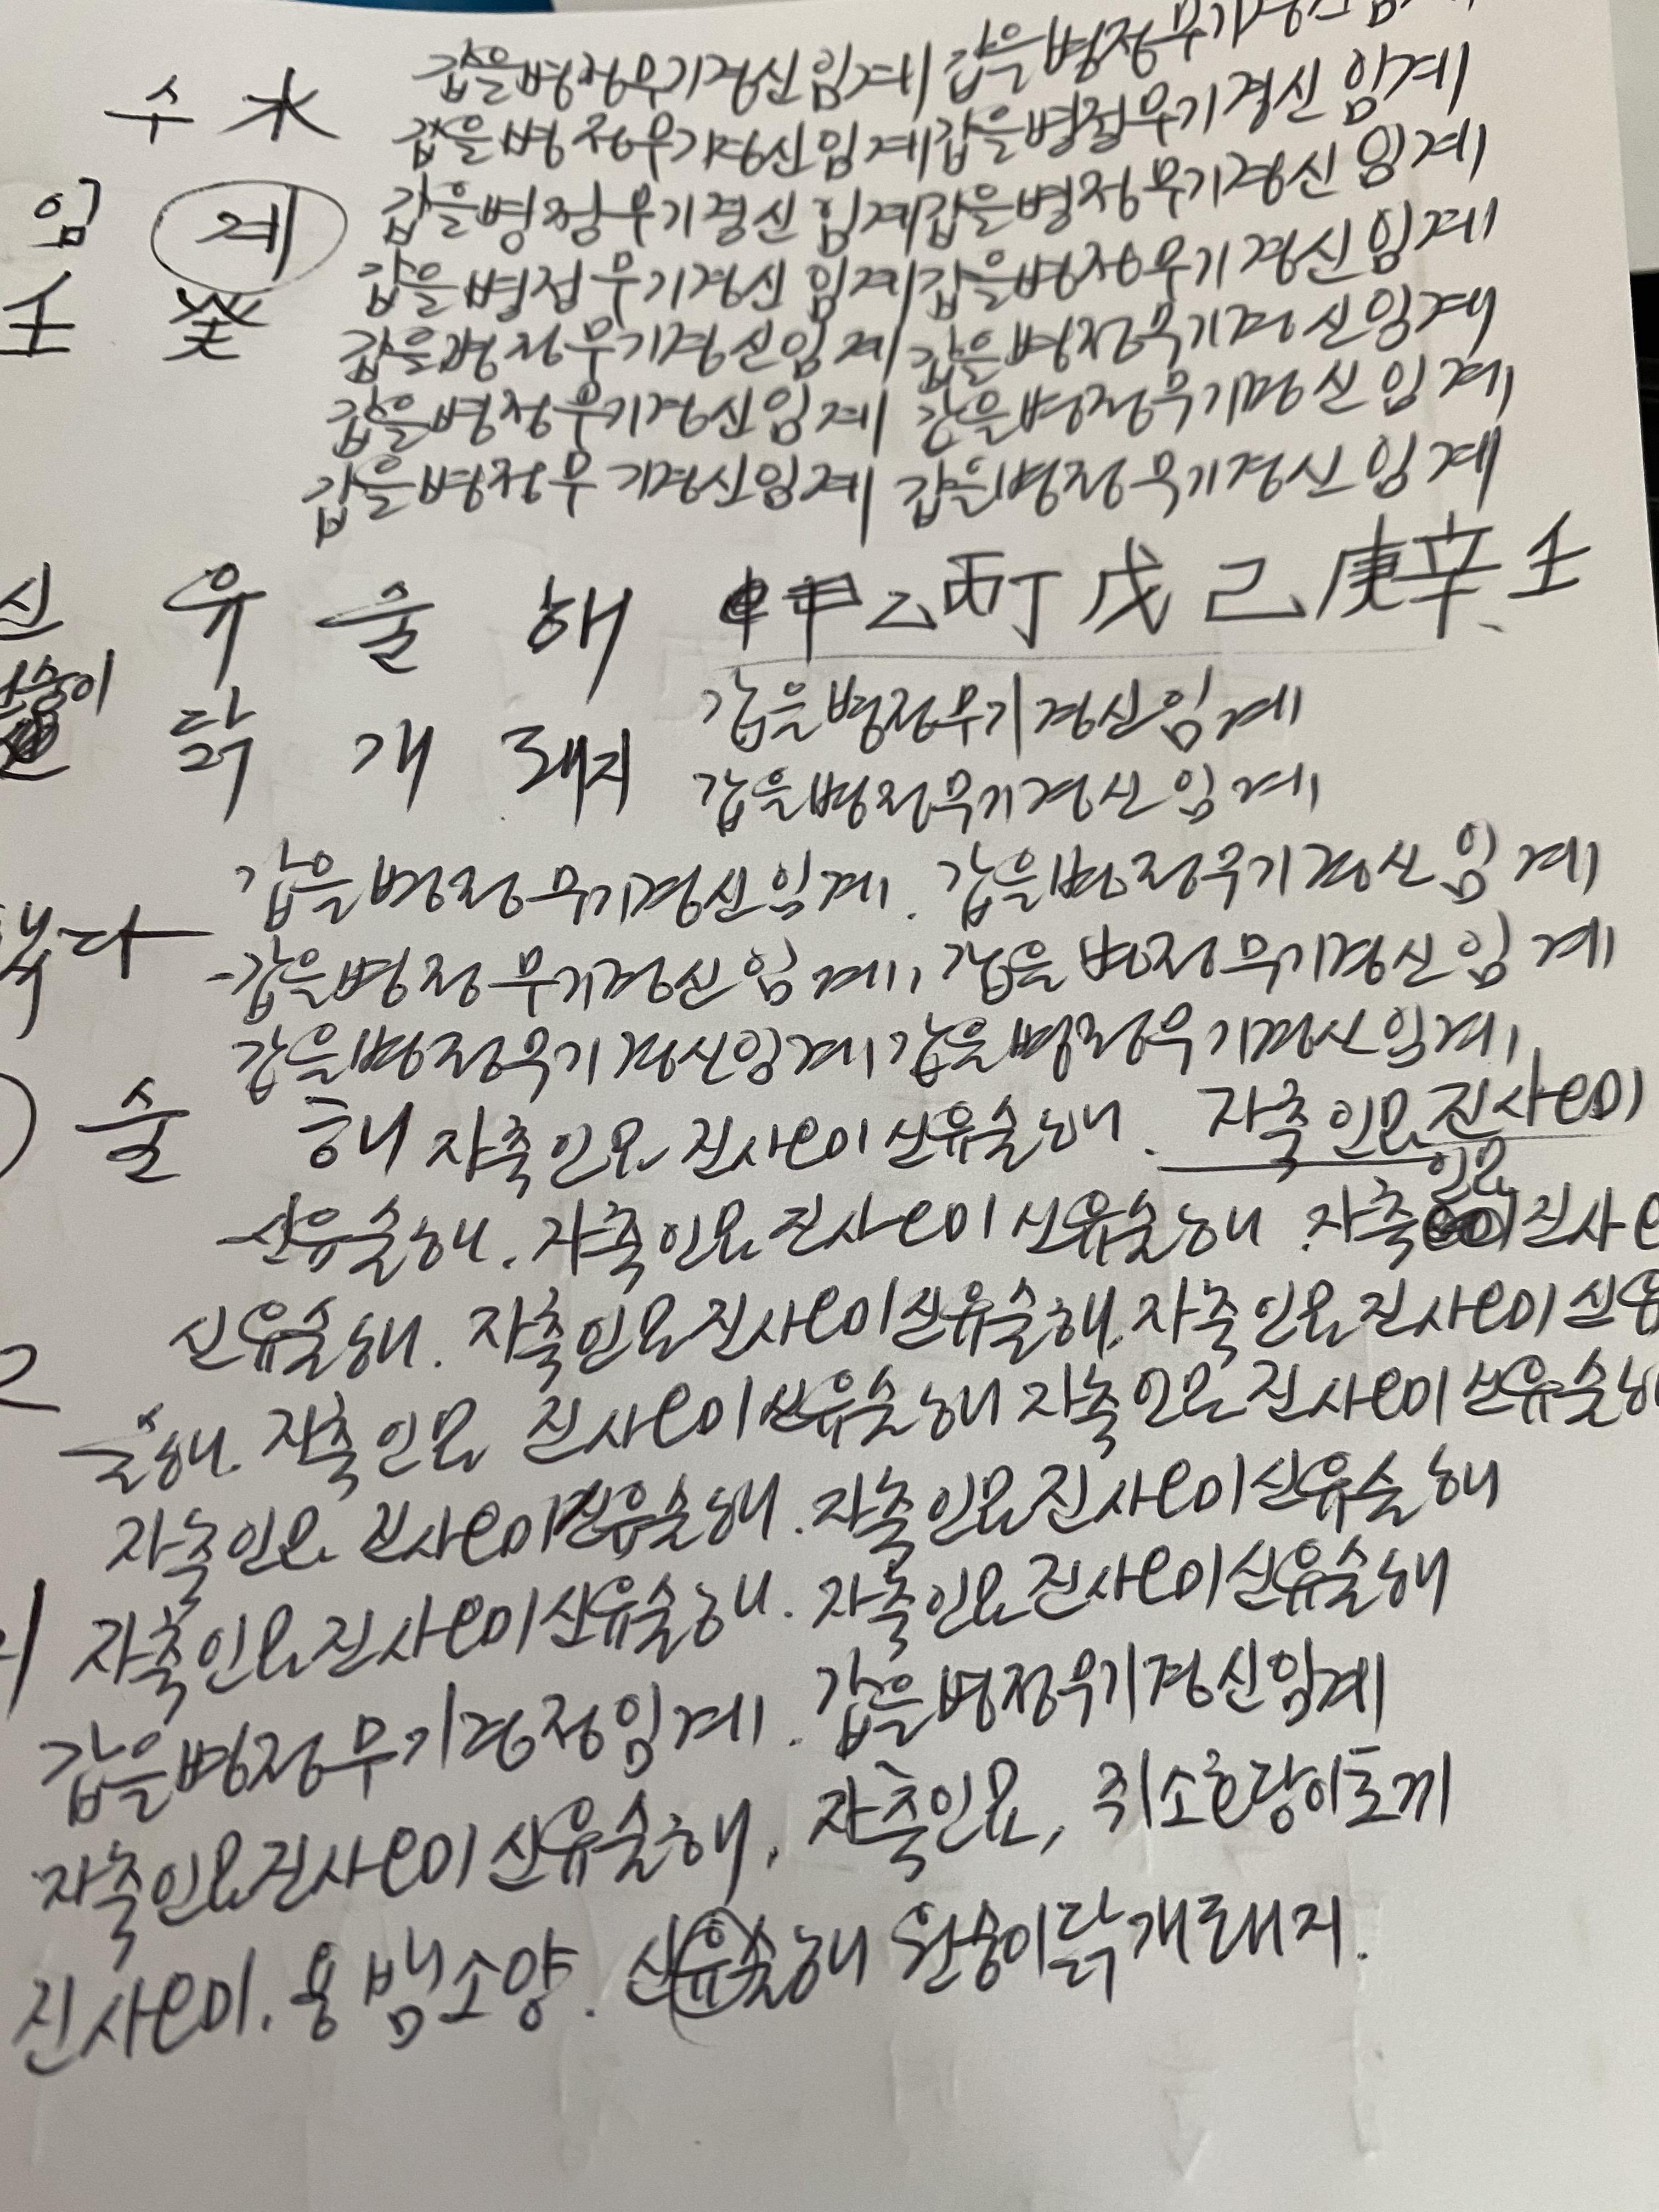 갑을병정무기경신임계 갑을병정무기경신임계
수 水 갑을병정무기경신임계 갑을병정무기경신임계
임 계 갑을병정무기경신임계 갑을병정무기경신임계
壬 癸 갑을병정무기경신임계 갑을병정무기경신임계
갑을병정무기경신임계 갑을병정무기경신임계
갑을병정무기경신임계 갑을병정무기경신임계
갑을병정무기경신임계 갑을병정무기경신임계
신 유 술 해 甲乙丙丁戊己庚辛壬
숭이 갑을병정무기경신임계
닭 개 돼지 갑을병정무기경신임계
갑을병정무기경신임계. 갑을병정무기경신임계
다 갑을병정무기경신임계, 갑을병정무기경신임계
갑을병정무기경신임계 갑을병정무기경신임계
술 해 자축인묘진사오미신유술해. 자축인묘진사오미
인묘
신유술해. 자축인묘진사오미신유술해. 자축 진사오
신유술해. 자축인묘진사오미신유술해. 자축인묘진사오미신유
술해. 자축인묘진사오미신유술해 자축인묘진사오미신유술해
자축인묘진사오미신유술해. 자축인묘진사오미신유술해
자축인묘진사오미신유술해. 자축인묘진사오미신유술해
갑을병정무기경정임계. 갑을병정무기경신임계
자축인묘진사오미신유술해, 자축인묘, 쥐소호랑이토끼
진사오미. 용뱀소양. 신유술해 원숭이닭개돼지.